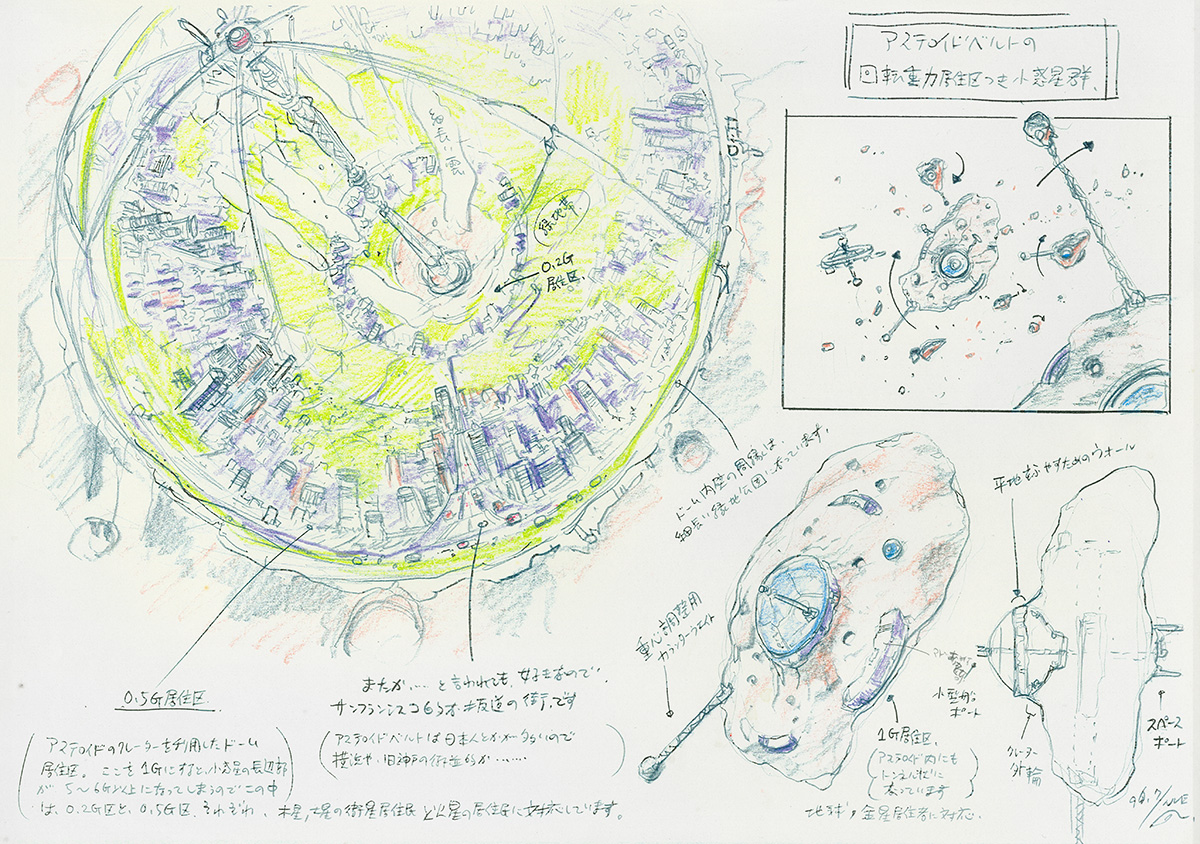 アステロイドベルトの
回転重力居住区つき小惑星群、
細長い雲
緑地帯
0.2G
居住区
ドーム内壁の周縁は
細長い緑地公園になっています。
平地を増やすためのウォール
重心調整用
カウンターウェイト
小型船
ポート
スペース
ポート
クレーター
外輪
1G居住区、
(アステロイド内にも
トンネル状に
なっています)
地球、金星居住者に対応.
0.5G居住区
またか…と言われても、好きなので…
サンフランシスコのような坂道の街です
(アステロイドベルトは日本人とかが多いので
横浜や旧神戸の街並的か……)
(アステロイドのクレーターを利用したドーム
居住区。ここを1Gにすると、小惑星の長辺部
が5〜6G以上になってしまうのでこの中
は、0.2G区と、0.5G区 それぞれ、木星,土星の衛星居住民と火星の居住民に対応しています。